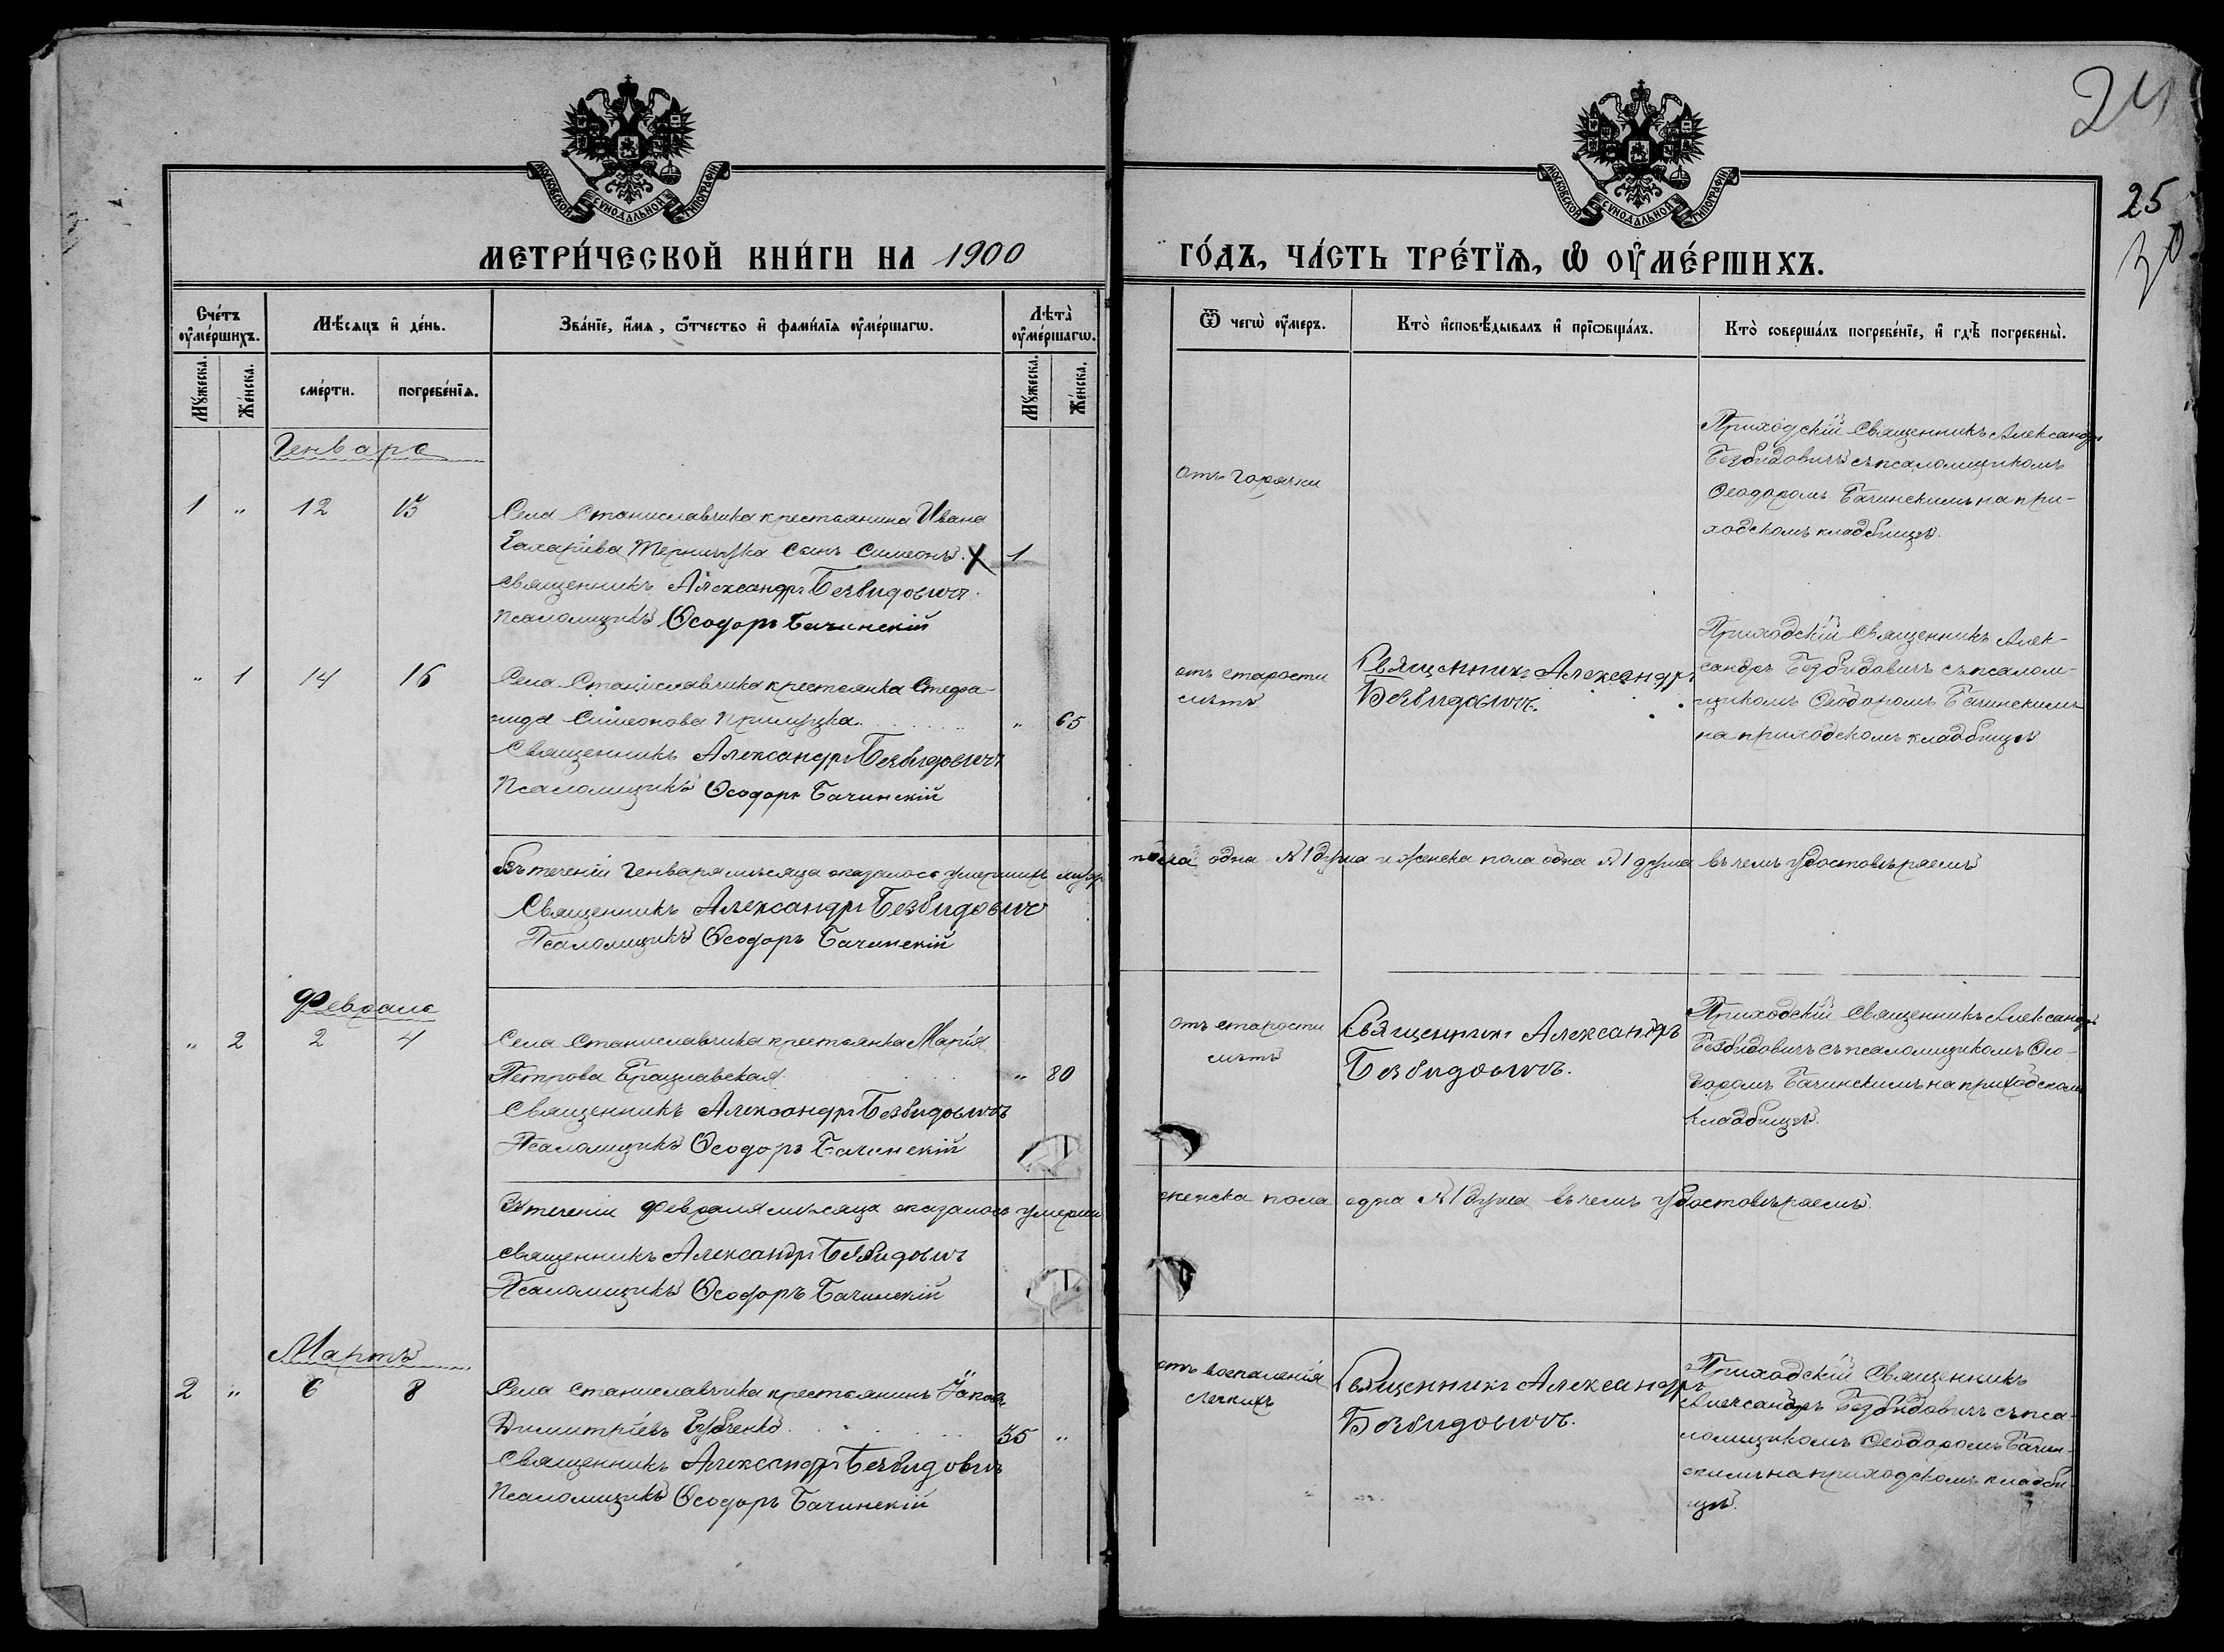 24
25
30
МОСКОВСКОЙ СѴНОДАЛЬНОЙ ТИПОГРАФІИ
МОСКОВСКОЙ СѴНОДАЛЬНОЙ ТИПОГРАФІИ
МЕТРИ́ЧЕСКОЙ КНИ́ГИ НА 1900
ГО́ДЪ, ЧА́СТЬ ТРЕ́ТЇѦ, Ѡ ОУ҆МЕ́РШИХЪ.
Сче́тъ оу҆ме́ршихъ.
Мѣ́сяцъ и҆ де́нь.
Зва́нїе, и҆́мя, ѻ҆́тчество и҆ фами́лїя оу҆ме́ршагѡ.
Лѣ̑та̀ оу҆ме́ршагѡ.
Ѿ чегѡ̀ оу҆́меръ.
Кто̀ и҆сповѣ́дывалъ и҆ прїѡбща́лъ.
Кто̀ соверша́лъ погребе́нїе, и҆ гдѣ̀ погребены̀.
Мꙋ́жеска.
Же́нска.
сме́рти.
погребе́нїя.
Мꙋ́жеска.
Же́нска.
Генварь
1 " 12 13
Села Станиславчика крестьянина Ивана
Захаріева сынъ Симеонъ. X 1
Священникъ Александръ Безвидовичъ.
Псаломщикъ Ѳеодоръ Бачинскій
отъ горячки
Приходскій Священникъ Александръ
Безвидовичъ съ псаломщикомъ
Ѳеодоромъ Бачинскимъ на при-
ходскомъ кладбищѣ.
" 1 14 16
Села Станиславчика крестьянка Стефа-
нида Симеонова " 65
Священникъ Александръ Безвидовичъ
Псаломщикъ Ѳеодоръ Бачинскій
отъ старости
лѣтъ
Священникъ Александръ
Безвидовичъ.
Приходскій Священникъ Алек-
сандръ Безвидовичъ съ псалом-
щикомъ Ѳеодоромъ Бачинскимъ
на приходскомъ кладбищѣ
Въ теченіи Генваря мѣсяца оказалось умершихъ муж
пола одна № 1 душа и женска пола одна № 1 душа въ чемъ удостовѣряемъ
Священникъ Александръ Безвидовичъ
Псаломщикъ Ѳеодоръ Бачинскій
Февраль
" 2 2 4
Села Станиславчика крестьянка Марія
Петрова Брацлавская " 80
Священникъ Александръ Безвидовичъ
Псаломщикъ Ѳеодоръ Бачинскій
отъ старости
лѣтъ
Священникъ Александръ
Безвидовичъ.
Приходскій Священникъ Александръ
Безвидовичъ съ псаломщикомъ Ѳео-
доромъ Бачинскимъ на приходскомъ
кладбищѣ.
Въ теченіи Февраля мѣсяца оказалось умерши
женска пола одна № 1 душа въ чемъ удостовѣряемъ.
Священникъ Александръ Безвидовичъ
Псаломщикъ Ѳеодоръ Бачинскій
Мартъ
2 " 6 8
Села Станиславчика крестьянинъ Іаковъ
Димитріевъ 35 "
Священникъ Александръ Безвидовичъ
Псаломщикъ Ѳеодоръ Бачинскій
отъ воспаленія
легкихъ
Священникъ Александръ
Безвидовичъ.
Приходскій Священникъ
Александръ Безвидовичъ съ пса-
ломщикомъ Ѳеодоромъ Бачин-
скимъ на приходскомъ кладби-
щѣ.